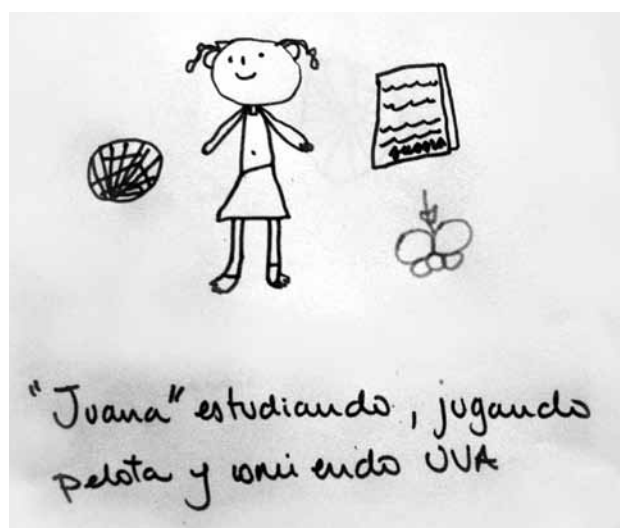 "Juana" estudiando, jugando
pelota y comiendo UVA